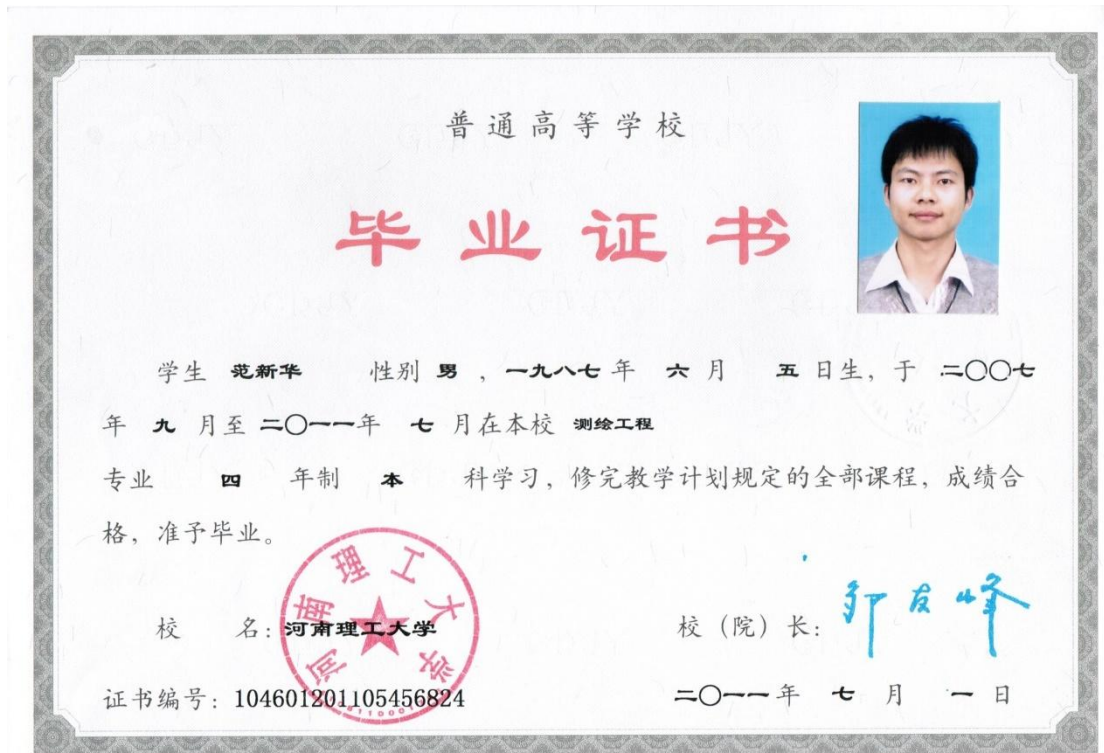 普通高等学校
毕业证书
学生 范新华 性别 男 ，一九八七 年 六 月 五 日生，于 二〇〇七
年 九 月至 二〇一一年 七 月在本校 测绘工程
专业 四 年制 本 科学习，修完教学计划规定的全部课程，成绩合
格，准予毕业。
河南理工大学
校 名：河南理工大学
校（院）长：邹友峰
证书编号：104601201105456824
二〇一一 年 七 月 一 日